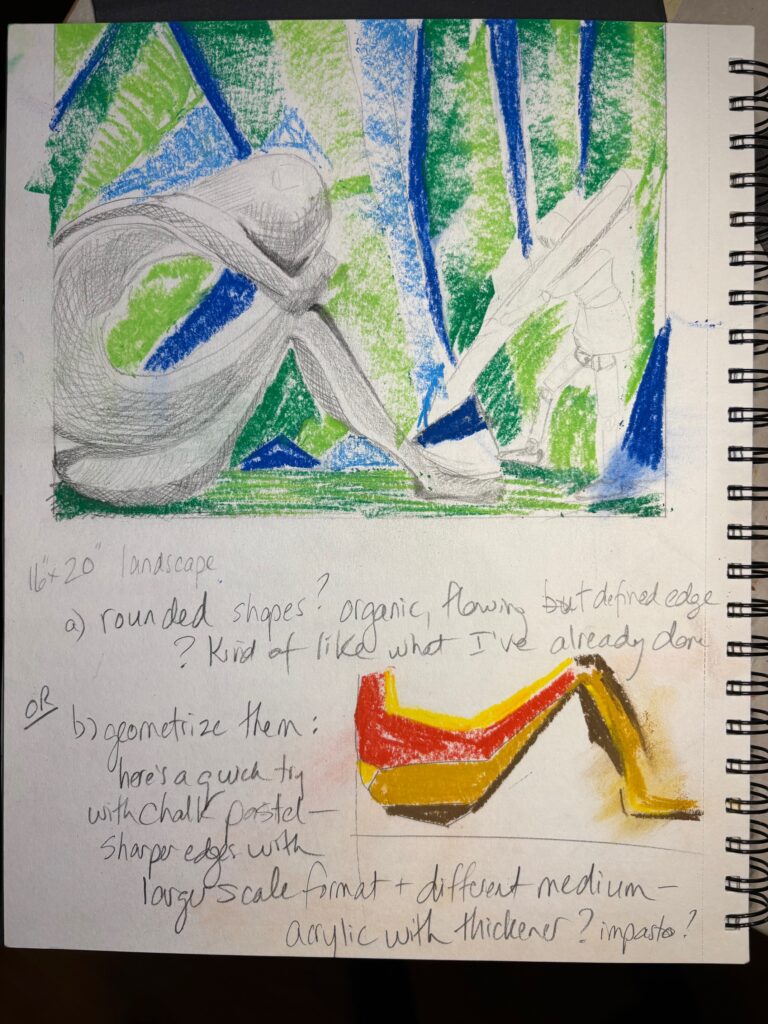 16" x 20" landscape
a) rounded shapes? organic, flowing but defined edge
? Kind of like what I've already done
OR
b) geometrize them:
here's a quick try
with chalk pastel—
sharper edges with
larger scale format + different medium—
acrylic with thickener? impasto?